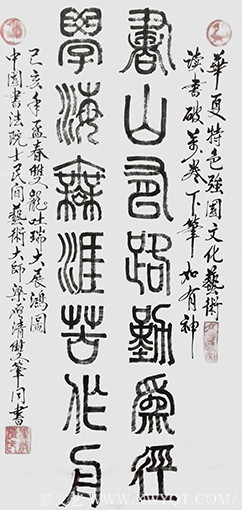 華夏特色強國文化藝術
读書破萬卷下筆如有神
書山有路勤為徑
學海無涯苦作舟
己亥年孟春雙龍吐瑞大展鴻圖
中國書法院士民间藝術大師梁清雙筆同書